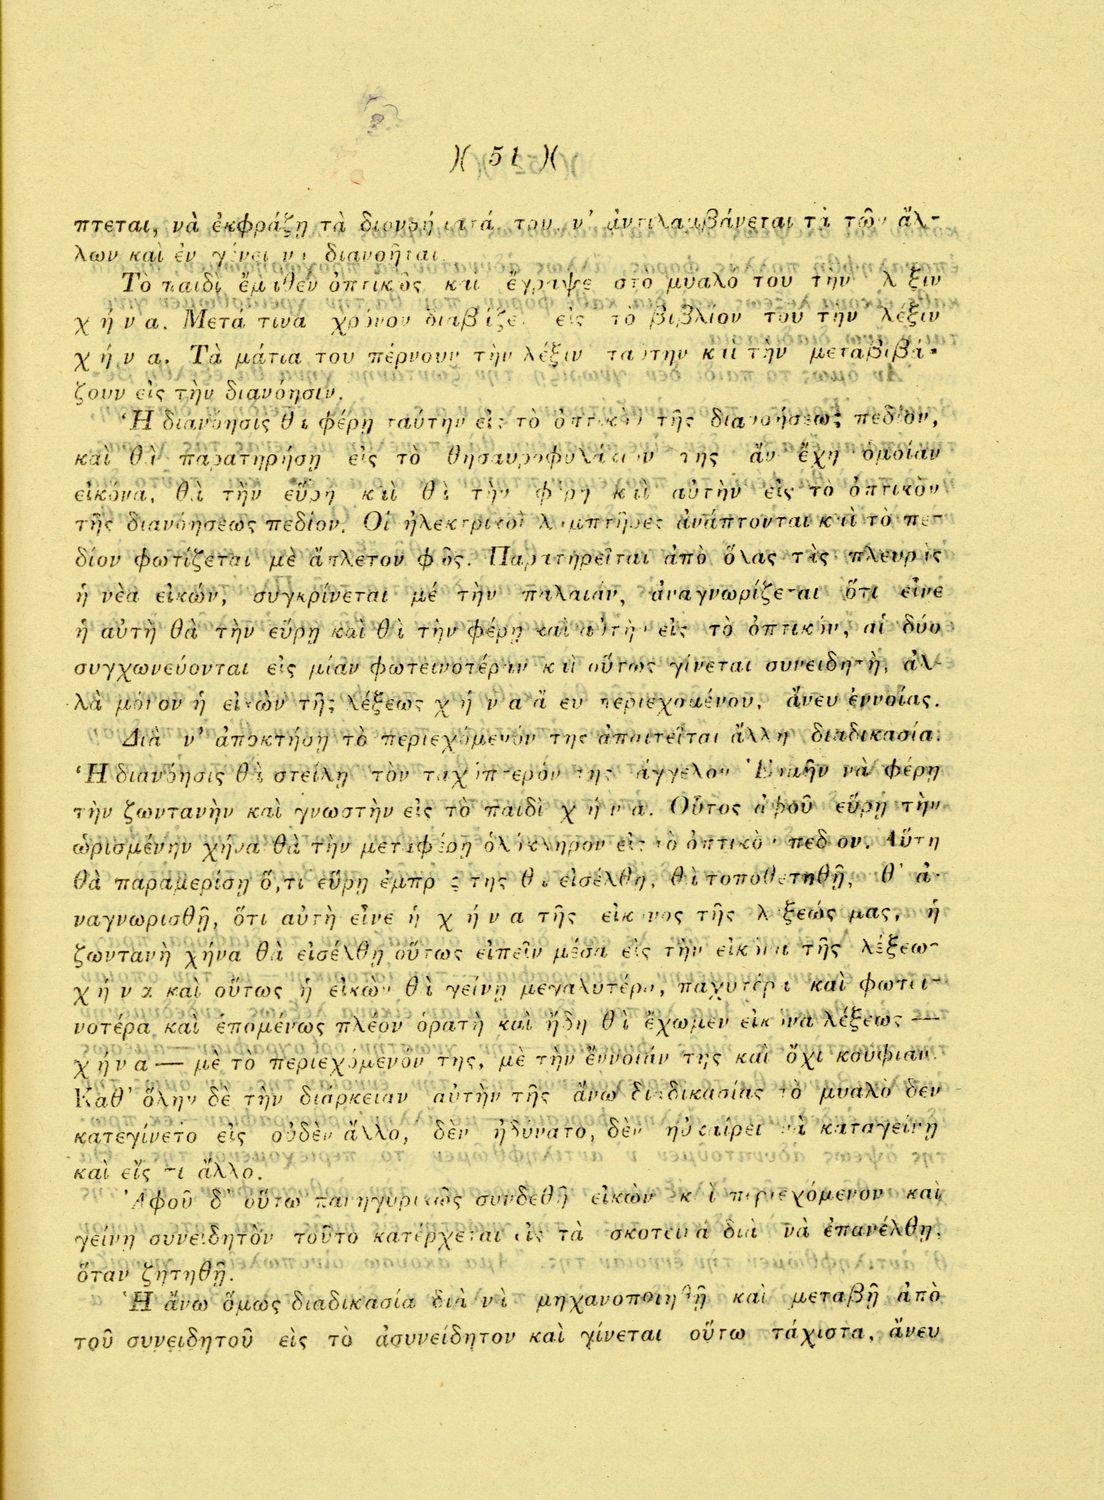 )( 51 )(
πτεται, νὰ ἐκφράζῃ τὰ διανοήματά του, ν' ἀντιλαμβάνεται τὰ τῶν ἄλ-
λων καὶ ἐν γένει νὰ διανοῆται.
Τὸ παιδὶ ἔμαθεν ὀπτικῶς καὶ ἔγραψε στὸ μυαλό του τὴν λέξιν
χήνα. Μετά τινα χρόνον διαβάζει εἰς τὸ βιβλίον του τὴν λέξιν
χήνα. Τὰ μάτια του πέρνουν τὴν λέξιν ταύτην καὶ τὴν μεταβιβά-
ζουν εἰς τὴν διανόησιν.
Ἡ διανόησις θὰ φέρῃ ταύτην εἰς τὸ ὀπτικὸν τῆς διανοήσεως πεδίον,
καὶ θὰ παρατηρήσῃ εἰς τὸ θησαυροφυλάκιόν της ἂν ἔχῃ ὁμοίαν
εἰκόνα, θὰ τὴν εὕρῃ καὶ θὰ τὴν φέρῃ καὶ αὐτὴν εἰς τὸ ὀπτικὸν
τῆς διανοήσεως πεδίον. Οἱ ἠλεκτρικοὶ λαμπτῆρες ἀνάπτονται καὶ τὸ πε-
δίον φωτίζεται μὲ ἄπλετον φῶς. Παρατηρεῖται ἀπὸ ὅλας τὰς πλευρὰς
ἡ νέα εἰκών, συγκρίνεται μέ τὴν παλαιάν, ἀναγνωρίζεται ὅτι εἶνε
ἡ αὐτὴ θὰ τὴν εὕρῃ καὶ θὰ τὴν φέρῃ καὶ αὐτὴν εἰς τὸ ὀπτικόν, αἱ δύο
συγχωνεύονται εἰς μίαν φωτεινοτέραν καὶ οὕτως γίνεται συνειδητή, ἀλ-
λὰ μόνον ἡ εἰκὼν τῆς λέξεως χήνα ἄνευ περιεχομένου, ἄνευ ἐννοίας.
Διὰ ν' ἀποκτήσῃ τὸ περιεχόμενόν της ἀπαιτεῖται ἄλλη διαδικασία.
Ἡ διανόησις θὰ στείλῃ τὸν ταχύπτερόν της ἄγγελον Ἑρμῆν νὰ φέρῃ
τὴν ζωντανὴν καὶ γνωστὴν εἰς τὸ παιδὶ χήνα. Οὗτος ἀφοῦ εὕρῃ τὴν
ὡρισμένην χήνα θὰ τὴν μεταφέρῃ ὁλόκληρον εἰς τὸ ὀπτικὸν πεδίον. Αὕτη
θὰ παραμερίσῃ ὅ,τι εὕρῃ ἐμπρός της θὰ εἰσέλθῃ, θὰ τοποθετηθῇ, θ' ἀ-
ναγνωρισθῇ, ὅτι αὐτὴ εἶνε ἡ χήνα τῆς εἰκόνος τῆς λέξεώς μας, ἡ
ζωντανὴ χήνα θὰ εἰσέλθῃ οὕτως εἰπεῖν μέσα εἰς τὴν εἰκόνα τῆς λέξεως
χήνα καὶ οὕτως ἡ εἰκὼν θὰ γείνῃ μεγαλυτέρα, παχυτέρα καὶ φωτει-
νοτέρα καὶ ἑπομένως πλέον ὁρατὴ καὶ ἤδη θὰ ἔχωμεν εἰκόνα λέξεως —
χήνα — μὲ τὸ περιεχόμενόν της, μὲ τὴν ἔννοιάν της καὶ ὄχι κούφιαν.
Καθ' ὅλην δὲ τὴν διάρκειαν αὐτὴν τῆς ἄνω διαδικασίας τὸ μυαλὸ δεν
κατεγίνετο εἰς οὐδὲν ἄλλο, δὲν ἠδύνατο, δὲν ηὐκαίρει νὰ καταγείνῃ
καὶ εἴς τι ἄλλο.
Ἀφοῦ δ' οὕτω πανηγυρικῶς συνδεθῇ εἰκὼν καὶ περιεχόμενον καὶ
γείνῃ συνειδητὸν τοῦτο κατέρχεται εἰς τὰ σκοτεινὰ διὰ νὰ ἐπανέλθῃ,
ὅταν ζητηθῇ.
Ἡ ἄνω ὅμως διαδικασία διὰ νὰ μηχανοποιηθῇ καὶ μεταβῇ ἀπὸ
τοῦ συνειδητοῦ εἰς τὸ ἀσυνείδητον καὶ γίνεται οὕτω τάχιστα, ἄνευ